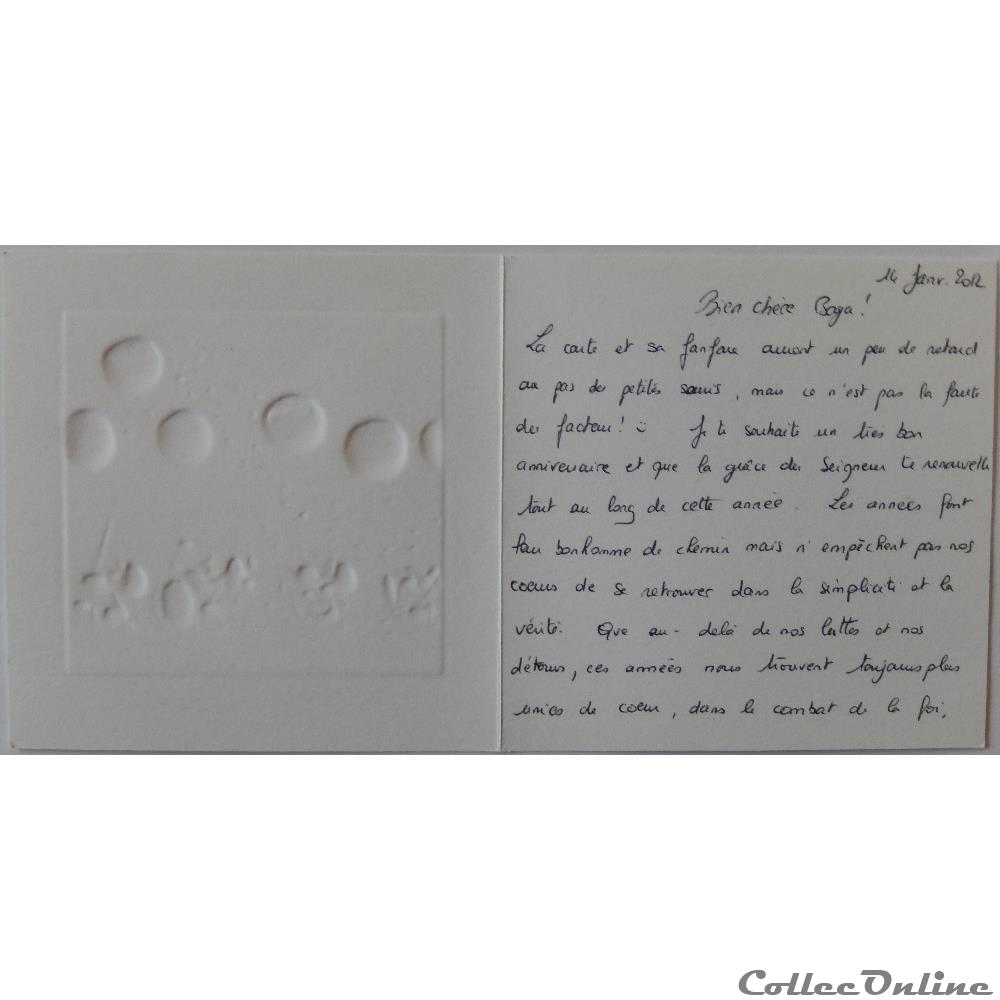 14 Janv. 2012
Bien chère Baya!
La carte et sa fanfare auront un peu de retard
au pas de petites souris, mais ce n'est pas la faute
du facteur! Je te souhaite un très bon
anniversaire et que la grâce du Seigneur te renouvelle
tout au long de cette année. Les années font
leur bonhomme de chemin mais n'empêchent pas nos
coeurs de se retrouver dans la simplicité et la
vérité. Que au-delà de nos luttes et nos
détours, ces années nous trouvent toujours plus
unies de coeur, dans le combat de la foi,
CollecOnline